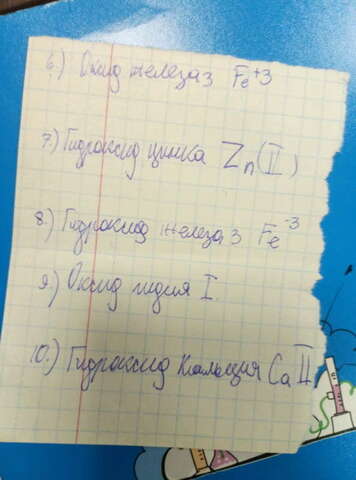 6.) Оксид железа 3 Fe⁺³
7.) Гидроксид цинка Zn(II)
8.) Гидроксид железа 3 Fe⁻³
9.) Оксид индия I
10.) Гидроксид кальция Ca II